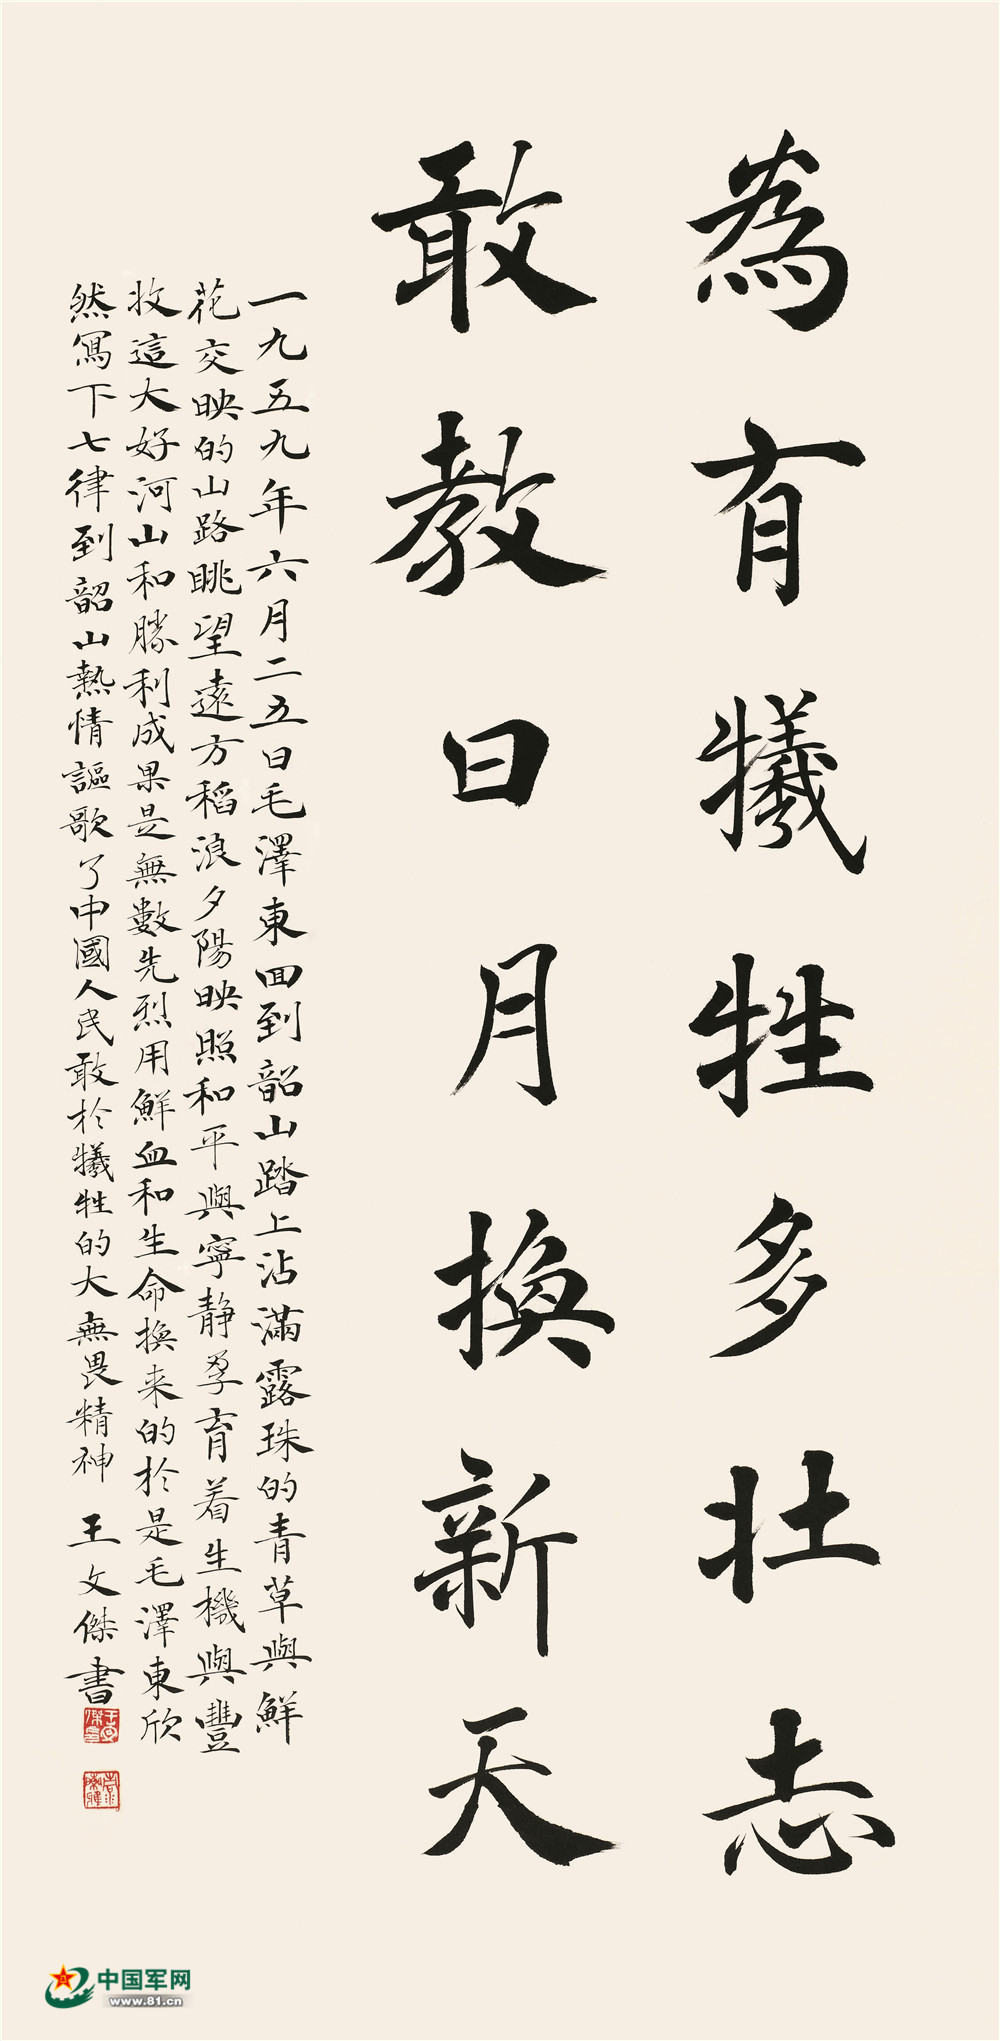 為有犧牲多壯志
敢教日月換新天
一九五九年六月二五日毛澤東回到韶山踏上沾滿露珠的青草與鮮
花交映的山路眺望遠方稻浪夕陽映照和平與寧静孕育着生機與豐
收這大好河山和勝利成果是無數先烈用鮮血和生命換来的於是毛澤東欣
然寫下七律到韶山熱情謳歌了中國人民敢於犧牲的大無畏精神 王文傑書
中国军网
www.81.cn